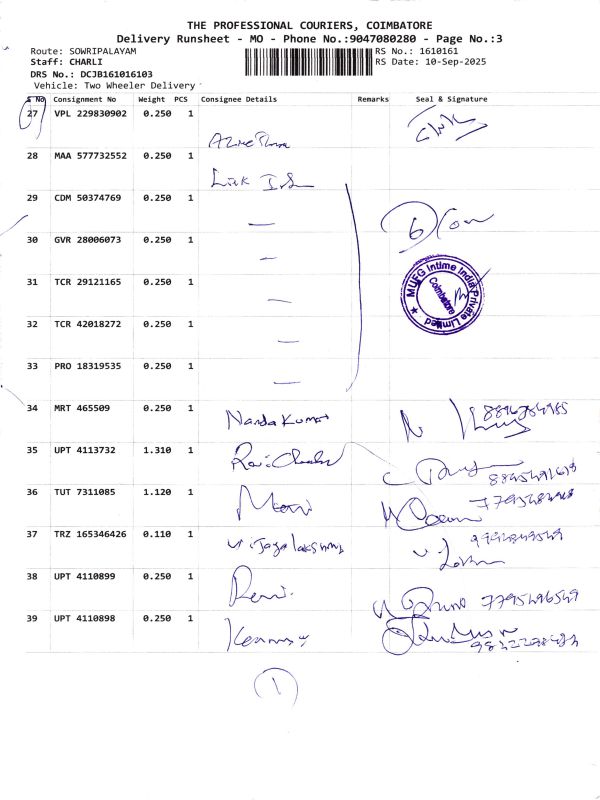 THE PROFESSIONAL COURIERS, COIMBATORE
Delivery Runsheet - MO - Phone No.:9047080280 - Page No.:3
Route: SOWRIPALAYAM RS No.: 1610161
Staff: CHARLI RS Date: 10-Sep-2025
DRS No.: DCJB161016103
Vehicle: Two Wheeler Delivery
S No Consignment No Weight PCS Consignee Details Remarks Seal & Signature
27 VPL 229830902 0.250 1
28 MAA 577732552 0.250 1
Link
29 CDM 50374769 0.250 1
—
6
30 GVR 28006073 0.250 1
—
MUFG Intime India Private Limited
Coimbatore
31 TCR 29121165 0.250 1
—
32 TCR 42018272 0.250 1
—
33 PRO 18319535 0.250 1
—
34 MRT 465509 0.250 1
Nanda Kumar
35 UPT 4113732 1.310 1
36 TUT 7311085 1.120 1
37 TRZ 165346426 0.110 1
Vijayalakshmi
38 UPT 4110899 0.250 1
7795496549
39 UPT 4110898 0.250 1
1